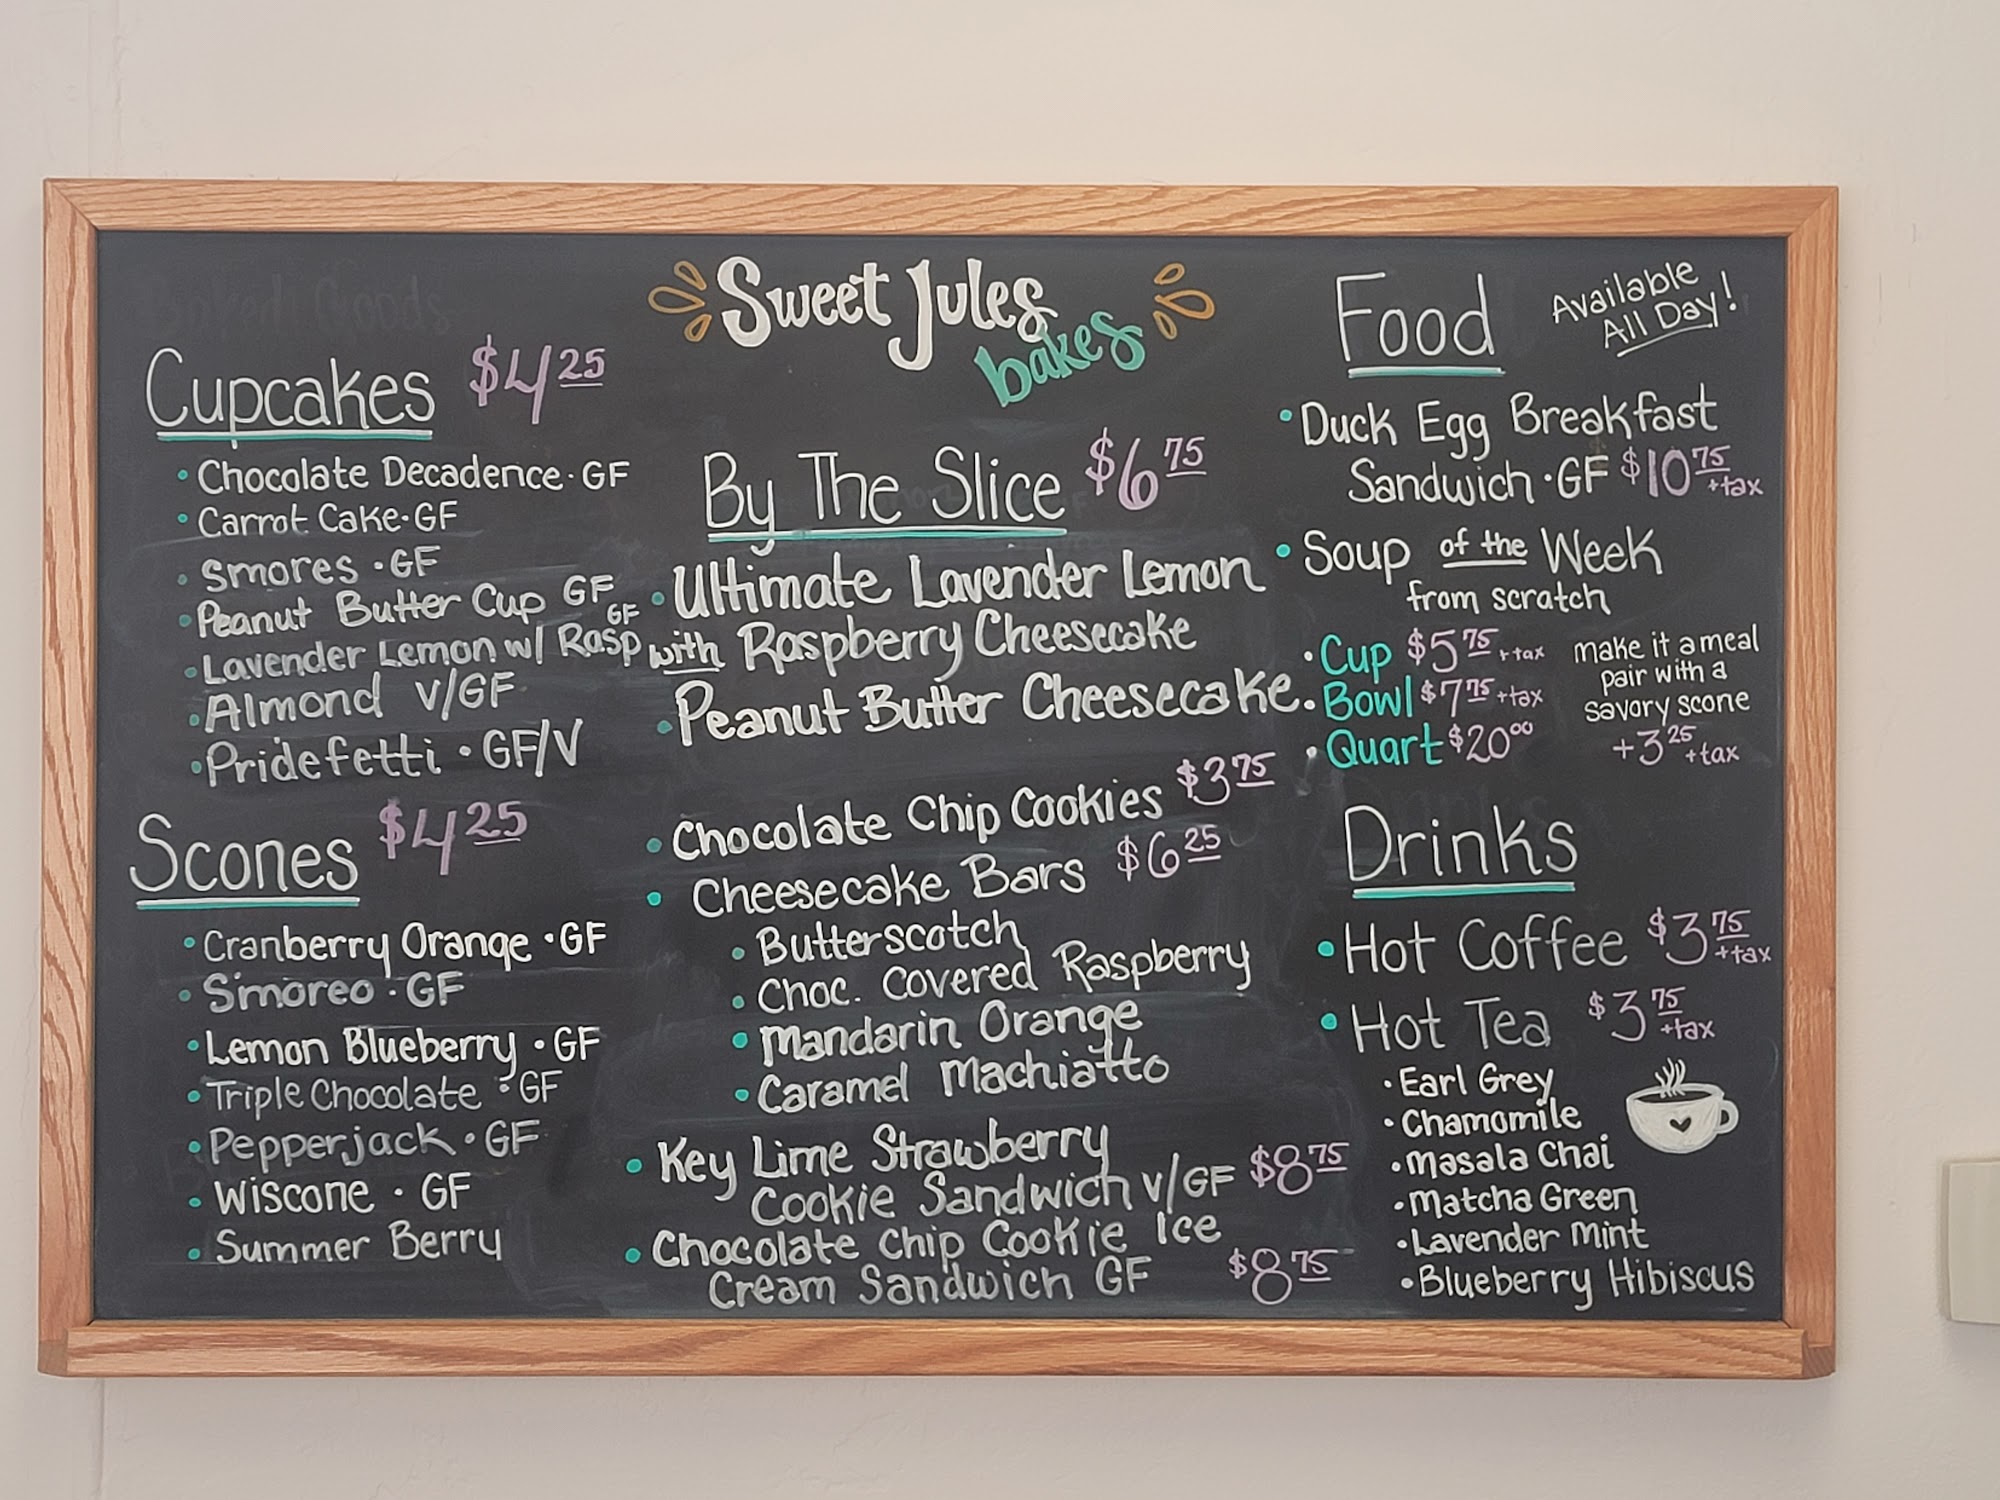 Sweet Jules
bakes
Baked Goods
Cupcakes $4 25
• Chocolate Decadence · GF
• Carrot Cake · GF
• Smores · GF
• Peanut Butter Cup GF
• Lavender Lemon w/ Rasp GF
• Almond V/GF
• Pridefetti · GF/V
Scones $4 25
• Cranberry Orange · GF
• S'moreo · GF
• Lemon Blueberry · GF
• Triple Chocolate · GF
• Pepperjack · GF
• Wiscone · GF
• Summer Berry
By The Slice $6 75
• Ultimate Lavender Lemon
with Raspberry Cheesecake
• Peanut Butter Cheesecake
• Chocolate Chip Cookies $3 75
• Cheesecake Bars $6 25
• Butterscotch
• Choc. Covered Raspberry
• Mandarin Orange
• Caramel Machiatto
• Key Lime Strawberry
Cookie Sandwich V/GF $8 75
• Chocolate Chip Cookie Ice
Cream Sandwich GF $8 75
Food
Available
All Day!
• Duck Egg Breakfast
Sandwich · GF $10 75 +tax
• Soup of the Week
from scratch
• Cup $5 75 +tax
• Bowl $7 75 +tax
• Quart $20 00
make it a meal
pair with a
savory scone
+3 25 +tax
Drinks
• Hot Coffee $3 75 +tax
• Hot Tea $3 75 +tax
• Earl Grey
• Chamomile
• Masala Chai
• Matcha Green
• Lavender Mint
• Blueberry Hibiscus